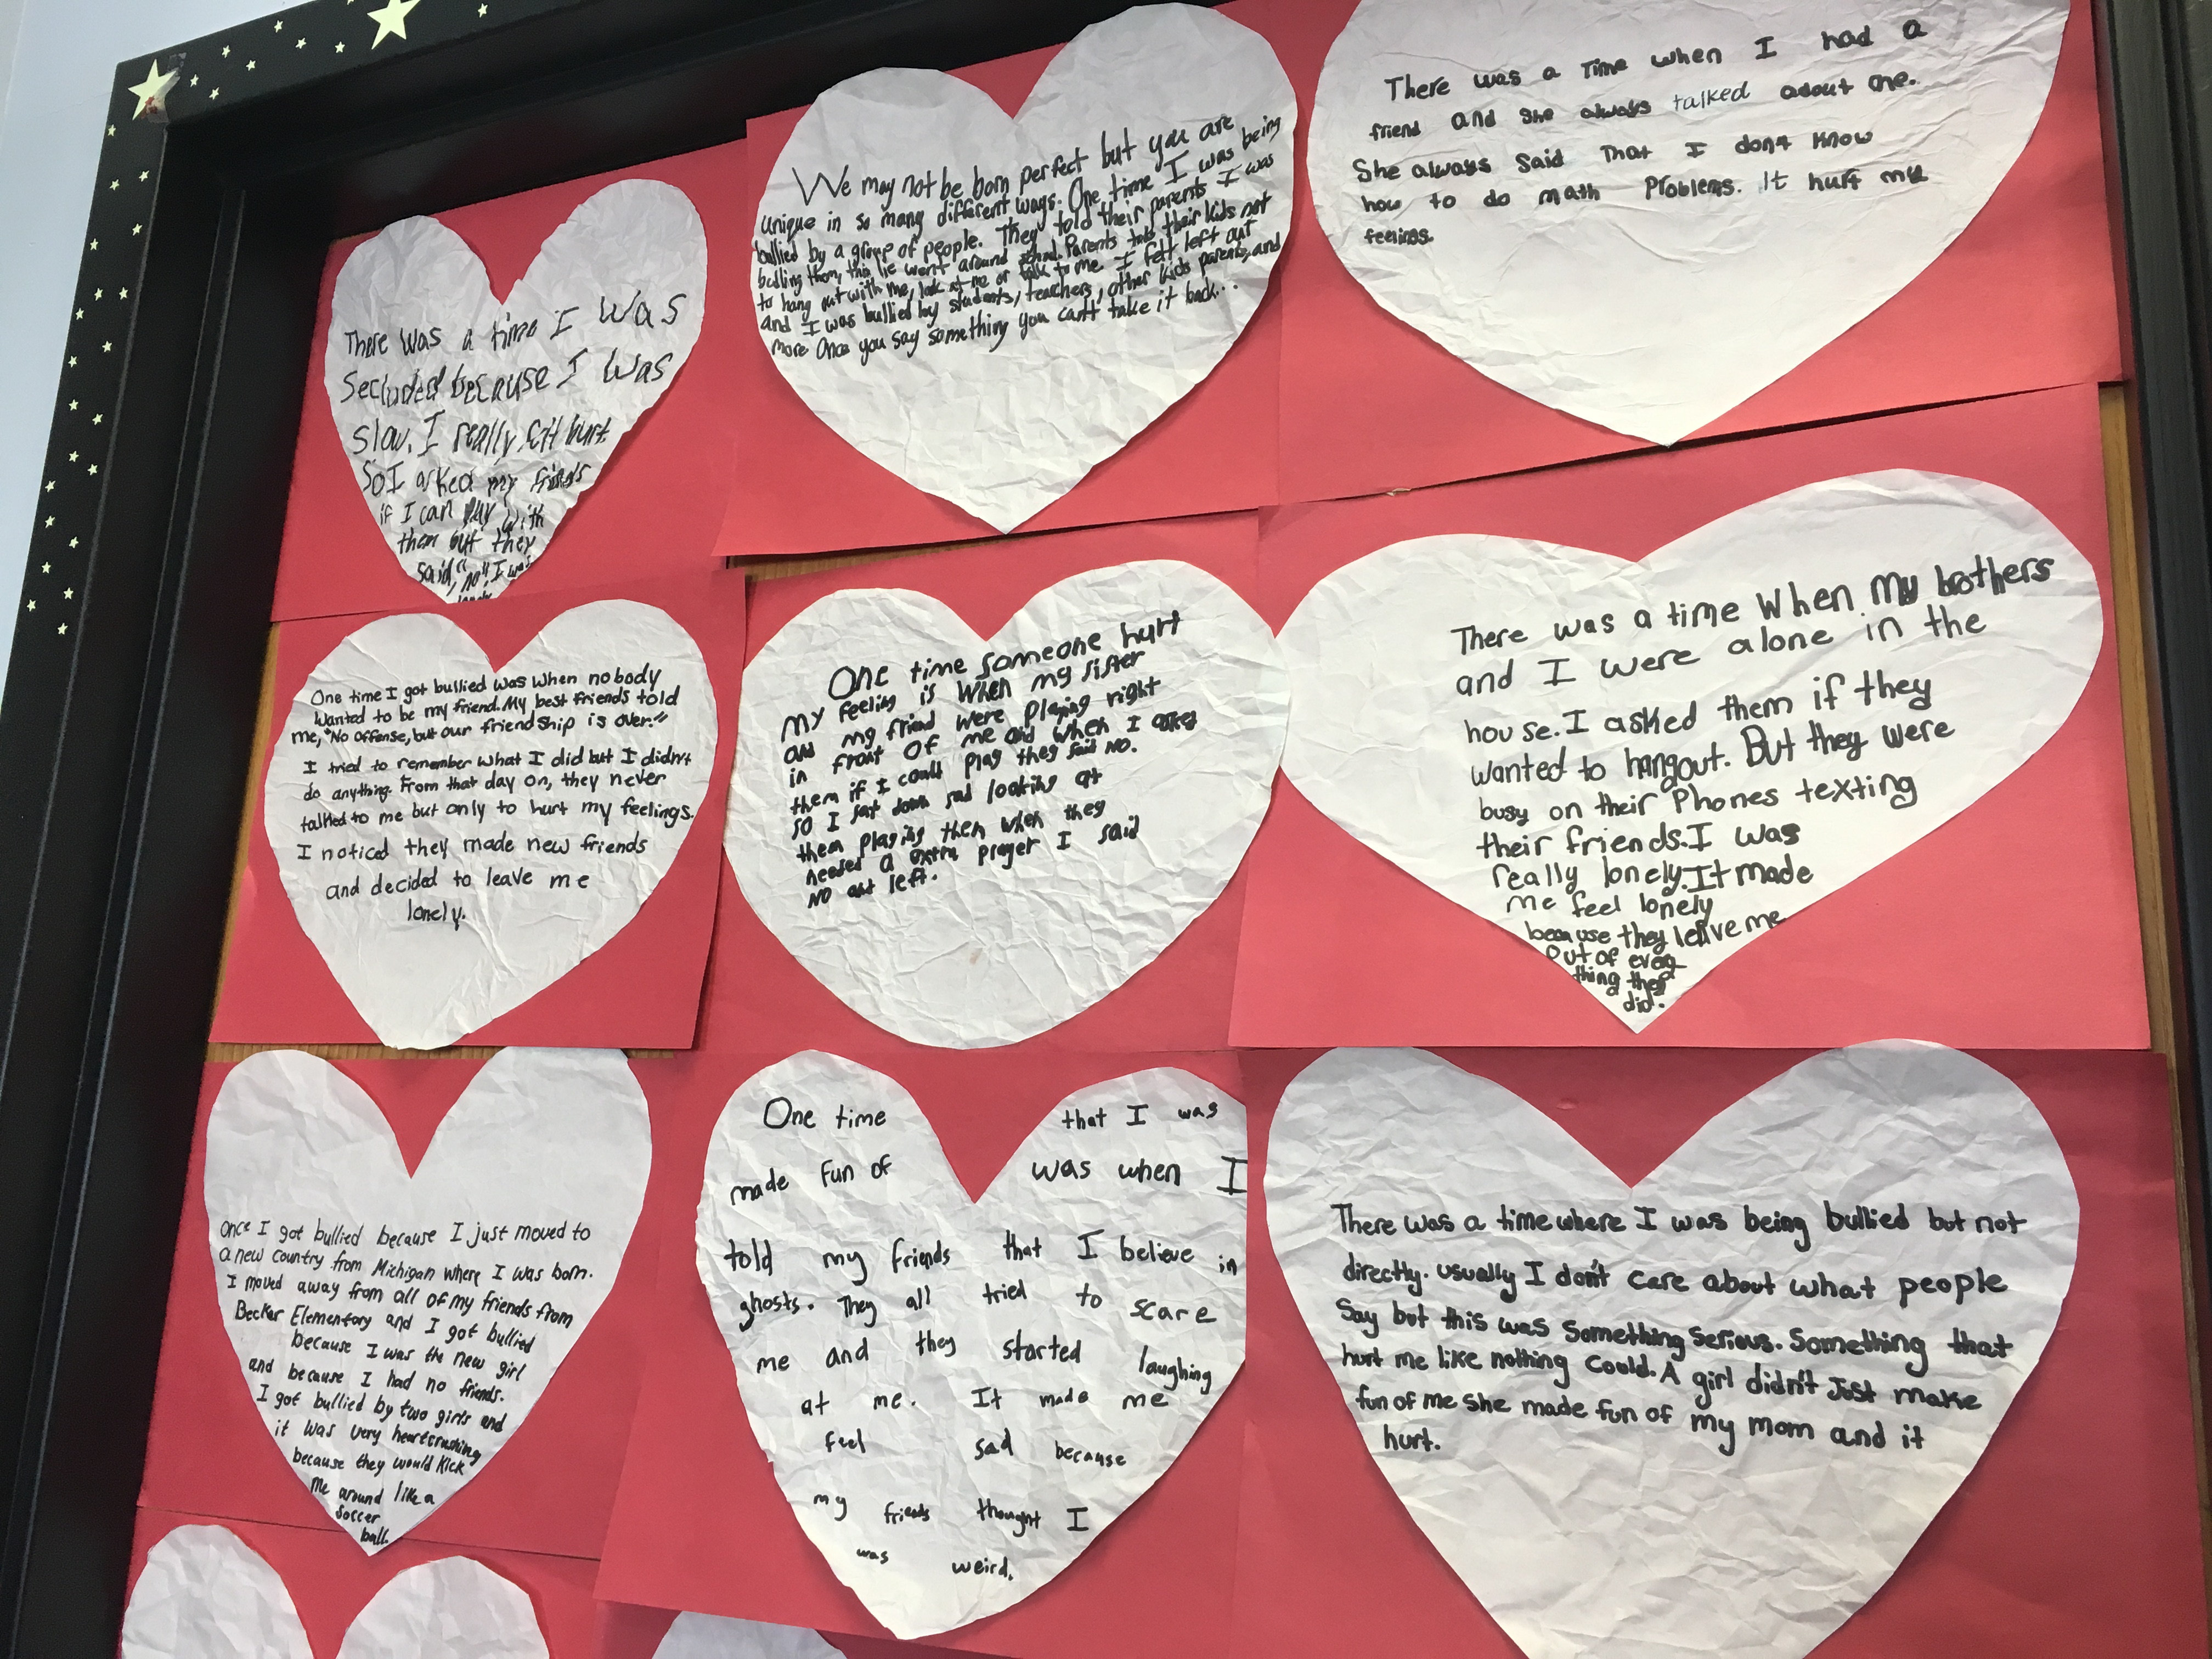 There was a time I was
secluded because I was
slow. I really felt hurt
So I asked my friends
if I can play with
them but they
said, "no", I was
We may not be born perfect but you are
unique in so many different ways. One time I was being
bullied by a group of people. They told their parents I was
bulling them, this lie went around school. Parents told their kids not
to hang out with me, look at me or talk to me. I felt left out
and I was bullied by students, teachers, other kids parents, and
more Once you say something you can't take it back...
There was a Time when I had a
friend and she always talked about me.
She always said That I don't know
how to do math Problems. It hurt my
feelings.
One time I got bullied was when nobody
wanted to be my friend. My best friends told
me, "No offense, but our friendship is over."
I tried to remember what I did but I didn't
do anything. From that day on, they never
talked to me but only to hurt my feelings.
I noticed they made new friends
and decided to leave me
lonely.
One time someone hurt
my feeling is when my sister
and my friend were playing right
in front of me and when I asked
them if I could play they said no.
so I sat down sad looking at
them playing then when they
needed a extra prayer I said
no and left.
There was a time when my brothers
and I were alone in the
house. I asked them if they
wanted to hangout. But they were
busy on their phones texting
their friends. I was
really lonely. It made
me feel lonely
because they leave me
out of every
thing they
did.
Once I got bullied because I just moved to
a new country from Michigan where I was born.
I moved away from all of my friends from
Becker Elementory and I got bullied
because I was the new girl
and because I had no friends.
I got bullied by two girls and
it was very heartcrushing
because they would kick
me around like a
soccer
ball.
One time that I was
made fun of was when I
told my friends that I believe in
ghosts. They all tried to scare
me and they started laughing
at me. It made me
feel sad because
my friends thought I
was weird.
There was a time where I was being bullied but not
directly. usually I don't care about what people
Say but this was something serious. Something that
hurt me like nothing could. A girl didn't Just make
fun of me she made fun of my mom and it
hurt.